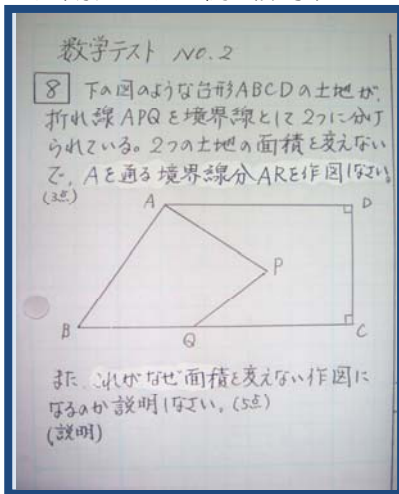 数学テスト NO.2
8 下の図のような台形ABCDの土地が、
折れ線APQを境界線として2つに分け
られている。2つの土地の面積を変えない
で、Aを通る境界線分ARを作図しなさい。
(3点)
A
D
P
B
Q
C
また、これがなぜ面積を変えない作図に
なるのか説明しなさい。(5点)
(説明)